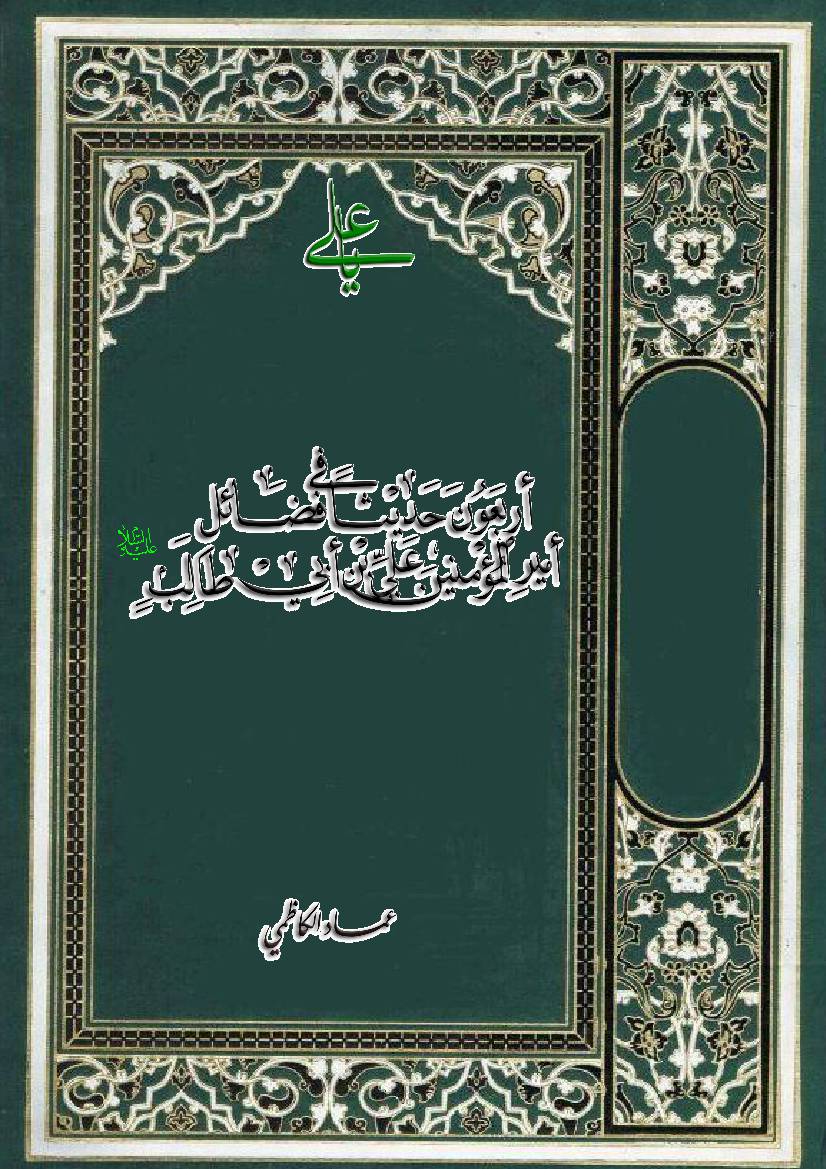 يا علي
أَرْبَعُوْنَ حَدِيْثًا فِي فَضَائِل
أَمِيْرِ الْمُؤْمِنِيْنَ عَلِيِّ بْنِ أَبِيْ طَالِبٍ عليه السلام
عماد الكاظمي